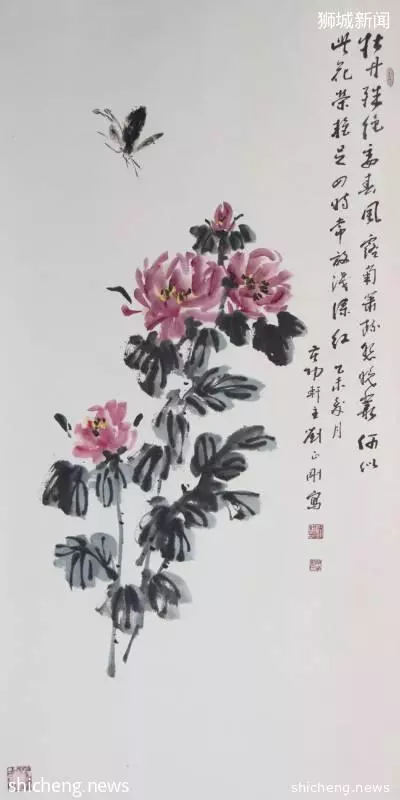 狮城新闻
牡丹殊绝委春風露菊萧疏怨晚叢何似
此花荣艳足四時常放浅深红 乙未
轩主劉正刚寫
shicheng.news
shicheng.news